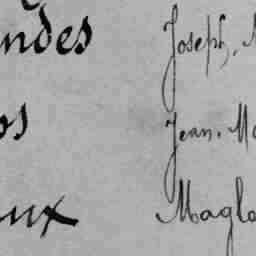 ndes Joseph, M
os Jean. Ma
ux Maglo